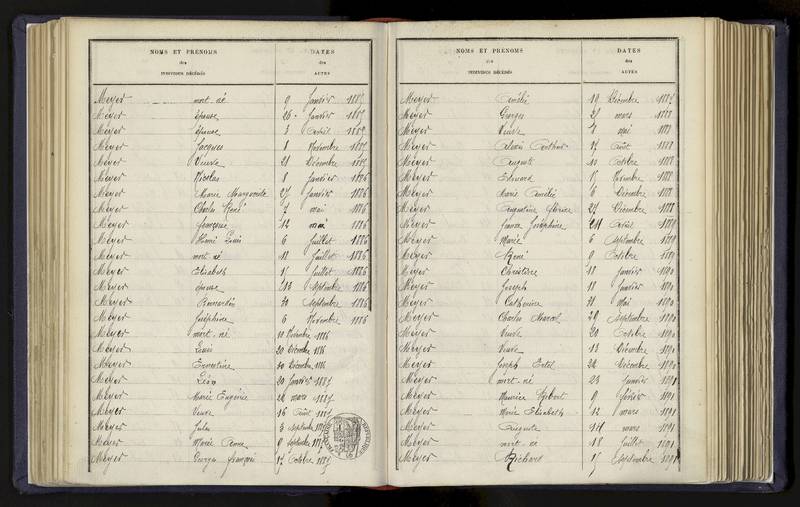 NOMS ET PRÉNOMS
des
INDIVIDUS DÉCÉDÉS
DATES
des
ACTES
Meyer mort-né 9 Janvier 1885
Meyer épouse 26 Janvier 1885
Meyer épouse 3 Avril 1885
Meyer Jacques 8 Novembre 1885
Meyer Veuve 21 Décembre 1885
Meyer Nicolas 8 Janvier 1886
Meyer Marie Marguerite 27 Janvier 1886
Meyer Charles René 7 mai 1886
Meyer 12 mai 1886
Meyer Henri Louis 6 Juillet 1886
Meyer mort-né 11 Juillet 1886
Meyer Elisabeth 15 Juillet 1886
Meyer épouse 13 Septembre 1886
Meyer Bernardin 30 Septembre 1886
Meyer Joséphine 6 Novembre 1886
Meyer mort-né 10 Décembre 1886
Meyer Louis 20 Décembre 1886
Meyer Ernestine 30 Décembre 1886
Meyer Léon 20 Janvier 1887
Meyer Marie Eugénie 22 mars 1887
Meyer Veuve 16 Août 1887
Meyer Jules 3 Septembre 1887
Meyer Marie Anne 9 Septembre 1887
Meyer Georges François 17 Octobre 1887
NOMS ET PRÉNOMS
des
INDIVIDUS DÉCÉDÉS
DATES
des
ACTES
Meyer Amélie 19 Décembre 1887
Meyer Georges 25 mars 1888
Meyer Veuve 7 mai 1888
Meyer Alexis Arthur 17 Août 1888
Meyer Auguste 10 Octobre 1888
Meyer Edouard 15 Novembre 1888
Meyer Marie Amélie 6 Décembre 1888
Meyer Augustine 27 Décembre 1888
Meyer Jeanne Joséphine Avril 1889
Meyer Marie 6 Septembre 1889
Meyer René 9 Octobre 1889
Meyer Christine 18 Janvier 1890
Meyer Joseph 18 Janvier 1890
Meyer Catherine 31 Mai 1890
Meyer Charles Marcel 29 Septembre 1890
Meyer Veuve 20 Octobre 1890
Meyer Veuve 13 Décembre 1890
Meyer Joseph 22 Décembre 1890
Meyer mort-né 23 Janvier 1891
Meyer Maurice 9 février 1891
Meyer Marie Elisabeth 12 mars 1891
Meyer Auguste mars 1891
Meyer mort-né 18 Juillet 1891
Meyer Richard 15 Septembre 1891